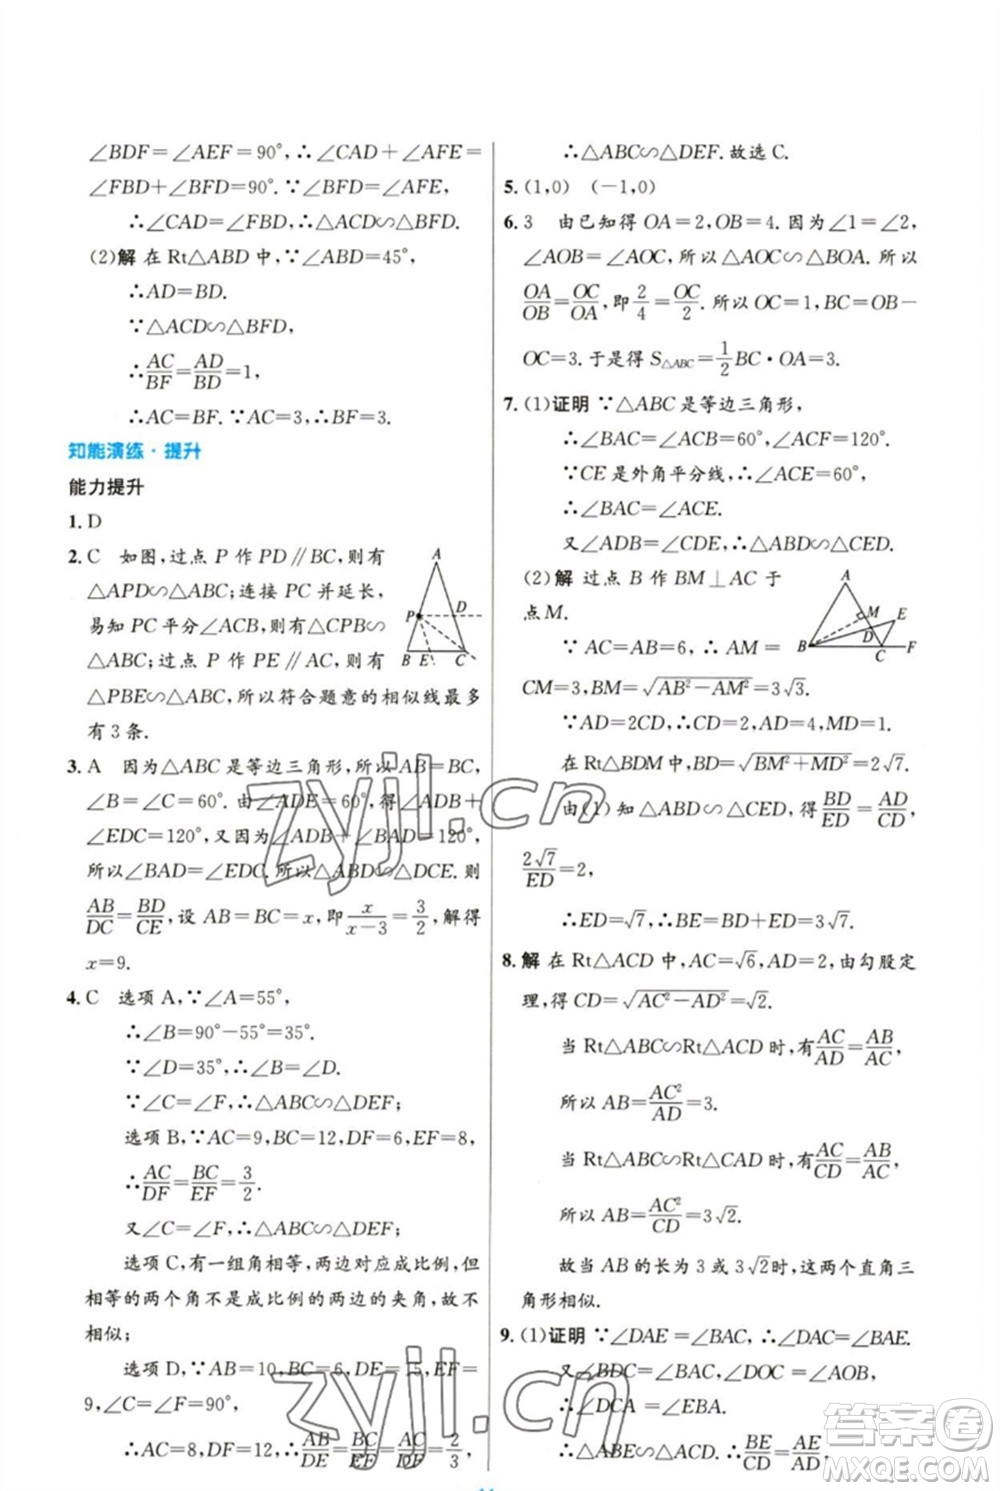 ∠BDF=∠AEF=90°,∴∠CAD+∠AFE=
∠FBD+∠BFD=90°.∵∠BFD=∠AFE,
∴∠CAD=∠FBD,∴△ACD∽△BFD.
(2)解 在Rt△ABD中,∵∠ABD=45°,
∴AD=BD.
∵△ACD∽△BFD,
∴AC/BF=AD/BD=1,
∴AC=BF.∵AC=3,∴BF=3.
知能演练·提升
能力提升
1.D
2.C 如图,过点P作PD∥BC,则有
△APD∽△ABC;连接PC并延长,
易知PC平分∠ACB,则有△CPB∽
△ABC;过点P作PE∥AC,则有
△PBE∽△ABC,所以符合题意的相似线最多
有3条.
A
P
D
B
E
C
3.A 因为△ABC是等边三角形,所以AB=BC,
∠B=∠C=60°.由∠ADE=60°,得∠ADB+
∠EDC=120°,又因为∠ADB+∠BAD=120°,
所以∠BAD=∠EDC.所以△ABD∽△DCE.则
AB/DC=BD/CE,设AB=BC=x,即x/(x-3)=3/2,解得
x=9.
4.C 选项A,∵∠A=55°,
∴∠B=90°-55°=35°.
∵∠D=35°,∴∠B=∠D.
∵∠C=∠F,∴△ABC∽△DEF;
选项B,∵AC=9,BC=12,DF=6,EF=8,
∴AC/DF=BC/EF=3/2.
又∠C=∠F,∴△ABC∽△DEF;
选项C,有一组角相等,两边对应成比例,但
相等的两个角不是成比例的两边的夹角,故不
相似;
选项D,∵AB=10,BC=6,DE=15,EF=
9,∠C=∠F=90°,
∴AC=8,DF=12,∴AB/DE=BC/EF=AC/DF=2/3,
∴△ABC∽△DEF.故选C.
5.(1,0) (-1,0)
6.3 由已知得OA=2,OB=4.因为∠1=∠2,
∠AOB=∠AOC,所以△AOC∽△BOA.所以
OA/OB=OC/OA,即2/4=OC/2.所以OC=1,BC=OB-
OC=3.于是得S△ABC=1/2BC·OA=3.
7.(1)证明 ∵△ABC是等边三角形,
∴∠BAC=∠ACB=60°,∠ACF=120°.
∵CE是外角平分线,∴∠ACE=60°,
∴∠BAC=∠ACE.
又∠ADB=∠CDE,∴△ABD∽△CED.
(2)解 过点B作BM⊥AC于
点M.
∵AC=AB=6,∴AM=
CM=3,BM=√(AB²-AM²)=3√3.
A
M
E
D
B
C
F
∵AD=2CD,∴CD=2,AD=4,MD=1.
在Rt△BDM中,BD=√(BM²+MD²)=2√7.
由(1)知△ABD∽△CED,得BD/ED=AD/CD,
2√7/ED=2,
∴ED=√7,∴BE=BD+ED=3√7.
8.解 在Rt△ACD中,AC=√6,AD=2,由勾股定
理,得CD=√(AC²-AD²)=√2.
当Rt△ABC∽Rt△ACD时,有AC/AD=AB/AC,
所以AB=AC²/AD=3.
当Rt△ABC∽Rt△CAD时,有AC/CD=AB/AC,
所以AB=AC²/CD=3√2.
故当AB的长为3或3√2时,这两个直角三
角形相似.
9.(1)证明 ∵∠DAE=∠BAC,∴∠DAC=∠BAE.
又∠BDC=∠BAC,∠DOC=∠AOB,
∴∠DCA=∠EBA.
∴△ABE∽△ACD.∴BE/CD=AE/AD,
zyjl.cn
zyjl.cn
答案卷
MXQE.COM